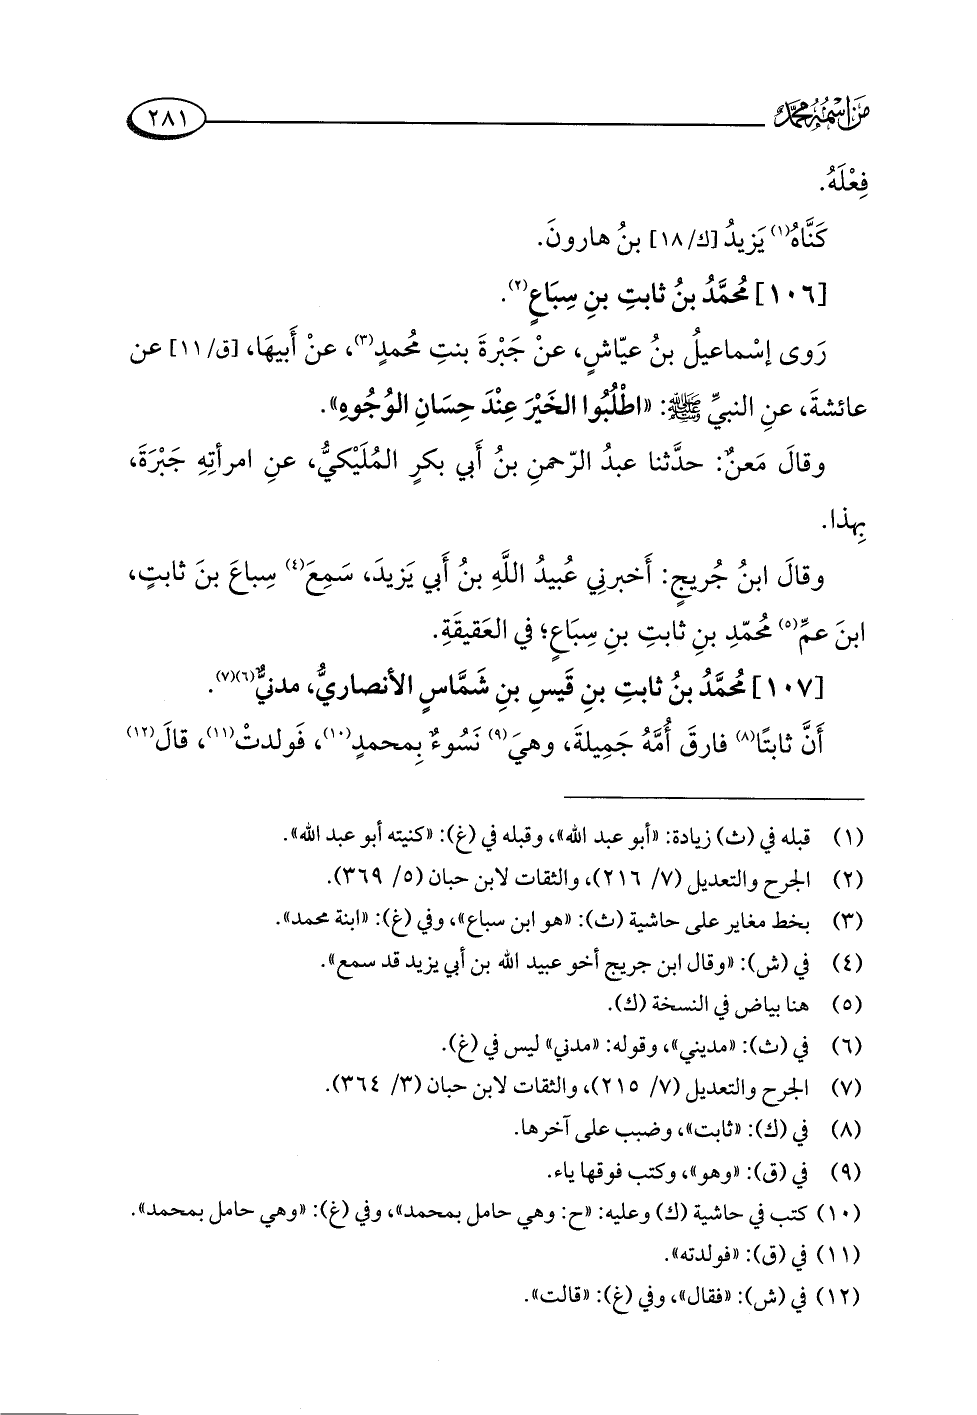 مَن اسْمُهُ مُحَمَّدٌ ٢٨١
فِعْلَهُ.
كَنَّاهُ(١) يَزِيدُ [ك/ ١٨] بنُ هارونَ.
[١٠٦] مُحَمَّدُ بنُ ثابتِ بنِ سِبَاعٍ(٢).
رَوى إسْماعيلُ بنُ عيّاشٍ، عنْ جَبْرةَ بنتِ مُحمدٍ(٣)، عنْ أَبيهَا، [ق/ ١١] عن
عائشةَ، عنِ النبيِّ ﷺ: «اطْلُبُوا الخَيْرَ عِنْدَ حِسَانِ الوُجُوهِ».
وقالَ مَعنٌ: حدَّثنا عبدُ الرّحمنِ بنُ أَبي بكرٍ المُلَيْكيُّ، عنِ امرأتِهِ جَبْرَةَ،
بِهذا.
وقالَ ابنُ جُريجٍ: أَخبرني عُبيدُ اللَّهِ بنُ أَبي يَزيدَ، سَمِعَ(٤) سِباعَ بنَ ثابتٍ،
ابنَ عمِّ(٥) مُحمّدِ بنِ ثابتِ بنِ سِبَاعٍ؛ في العَقيقَةِ.
[١٠٧] مُحمَّدُ بنُ ثابتِ بنِ قَيسِ بنِ شَمَّاسٍ الأَنصاريُّ، مدنيٌّ(٦)(٧).
أَنَّ ثابتًا(٨) فارقَ أُمَّهُ جَميلةَ، وهيَ(٩) نَسُوءٌ بِمحمدٍ(١٠)، فَولدتْ(١١)، قالَ(١٢)
(١) قبله في (ث) زيادة: «أبو عبد الله»، وقبله في (غ): «كنيته أبو عبد الله».
(٢) الجرح والتعديل (٧/ ٢١٦)، والثقات لابن حبان (٥/ ٣٦٩).
(٣) بخط مغاير على حاشية (ث): «هو ابن سباع»، وفي (غ): «ابنة محمد».
(٤) في (ش): «وقال ابن جريج أخو عبيد الله بن أبي يزيد قد سمع».
(٥) هنا بياض في النسخة (ك).
(٦) في (ث): «مديني»، وقوله: «مدني» ليس في (غ).
(٧) الجرح والتعديل (٧/ ٢١٥)، والثقات لابن حبان (٣/ ٣٦٤).
(٨) في (ك): «ثابت»، وضبب على آخرها.
(٩) في (ق): «وهو»، وكتب فوقها ياء.
(١٠) كتب في حاشية (ك) وعليه: «ح: وهي حامل بمحمد»، وفي (غ): «وهي حامل بمحمد».
(١١) في (ق): «فولدته».
(١٢) في (ش): «فقال»، وفي (غ): «قالت».